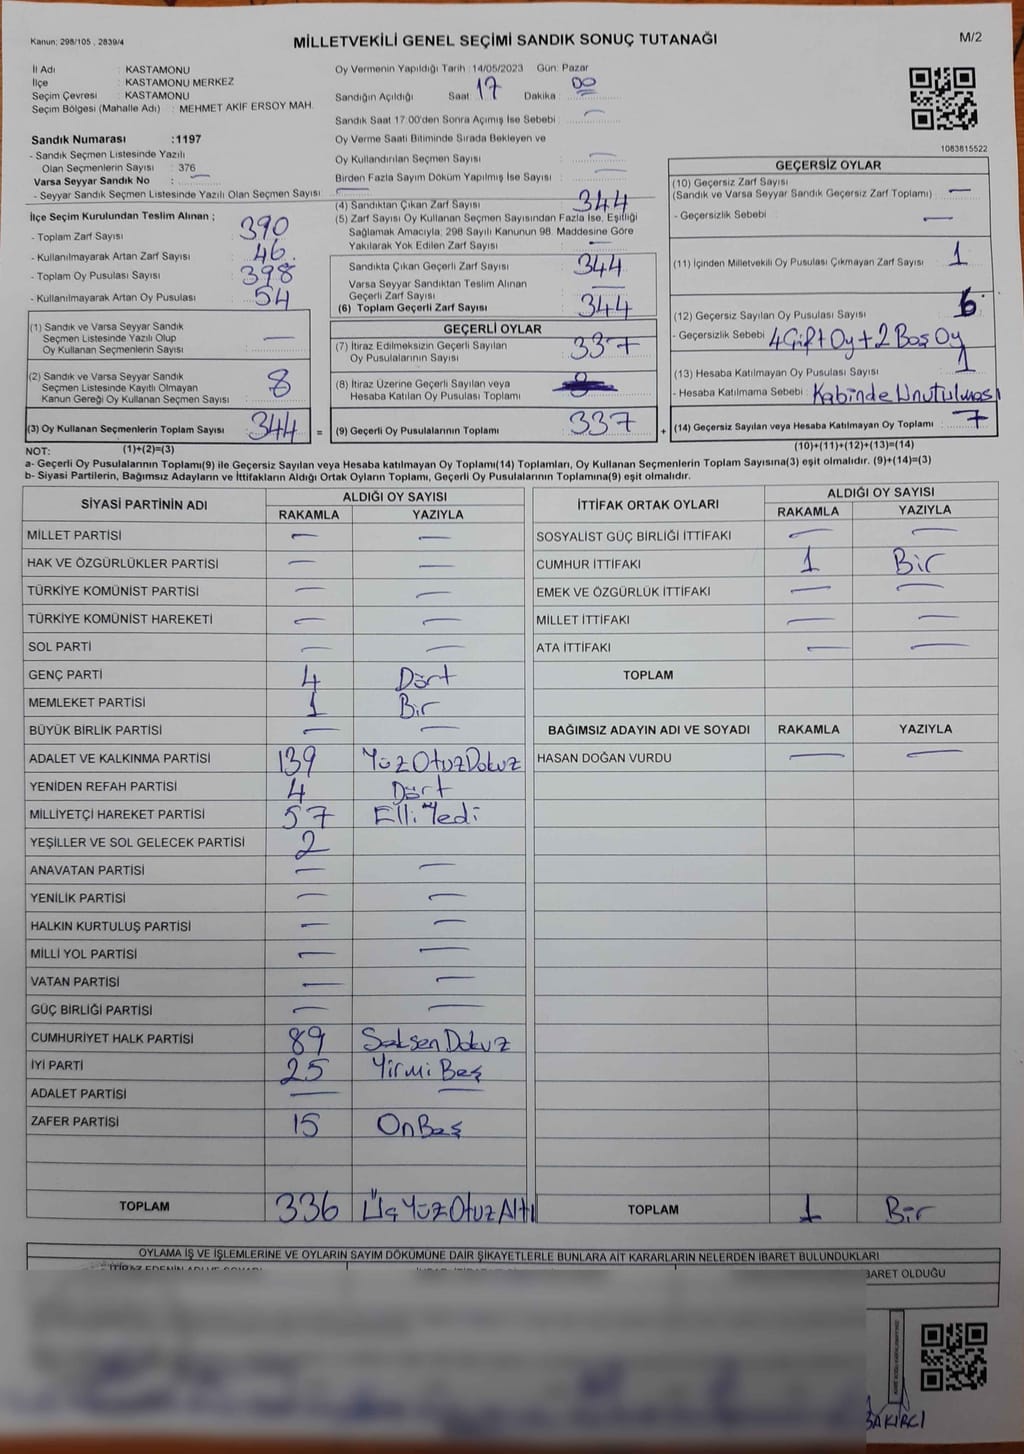 Kanun: 298/105 , 2839/4
MİLLETVEKİLİ GENEL SEÇİMİ SANDIK SONUÇ TUTANAĞI
M/2
İl Adı : KASTAMONU
İlçe : KASTAMONU MERKEZ
Seçim Çevresi : KASTAMONU
Seçim Bölgesi (Mahalle Adı) : MEHMET AKİF ERSOY MAH.
Sandık Numarası :1197
- Sandık Seçmen Listesinde Yazılı
Olan Seçmenlerin Sayısı : 376
Varsa Seyyar Sandık No : —
- Seyyar Sandık Seçmen Listesinde Yazılı Olan Seçmen Sayısı : —
İlçe Seçim Kurulundan Teslim Alınan ;
- Toplam Zarf Sayısı : 390
- Kullanılmayarak Artan Zarf Sayısı : 46.
- Toplam Oy Pusulası Sayısı : 398
- Kullanılmayarak Artan Oy Pusulası : 54
(1) Sandık ve Varsa Seyyar Sandık
Seçmen Listesinde Yazılı Olup
Oy Kullanan Seçmenlerin Sayısı : —
(2) Sandık ve Varsa Seyyar Sandık
Seçmen Listesinde Kayıtlı Olmayan
Kanun Gereği Oy Kullanan Seçmen Sayısı : 8
(3) Oy Kullanan Seçmenlerin Toplam Sayısı : 344 =
Oy Vermenin Yapıldığı Tarih :14/05/2023 Gün: Pazar
Sandığın Açıldığı Saat : 17 Dakika : 00
Sandık Saat 17:00'den Sonra Açımış İse Sebebi : —
Oy Verme Saati Bitiminde Sırada Bekleyen ve
Oy Kullandırılan Seçmen Sayısı : —
Birden Fazla Sayım Döküm Yapılmış İse Sayısı : —
(4) Sandıktan Çıkan Zarf Sayısı : 344
(5) Zarf Sayısı Oy Kullanan Seçmen Sayısından Fazla İse, Eşitliği
Sağlamak Amacıyla, 298 Sayılı Kanunun 98. Maddesine Göre
Yakılarak Yok Edilen Zarf Sayısı : —
Sandıkta Çıkan Geçerli Zarf Sayısı : 344
Varsa Seyyar Sandıktan Teslim Alınan
Geçerli Zarf Sayısı : —
(6) Toplam Geçerli Zarf Sayısı : 344
GEÇERLİ OYLAR
(7) İtiraz Edilmeksizin Geçerli Sayılan
Oy Pusulalarının Sayısı : 337
(8) İtiraz Üzerine Geçerli Sayılan veya
Hesaba Katılan Oy Pusulası Toplamı :
(9) Geçerli Oy Pusulalarının Toplamı : 337 +
1083815522
GEÇERSİZ OYLAR
(10) Geçersiz Zarf Sayısı
(Sandık ve Varsa Seyyar Sandık Geçersiz Zarf Toplamı) : —
- Geçersizlik Sebebi : —
(11) İçinden Milletvekili Oy Pusulası Çıkmayan Zarf Sayısı : 1
(12) Geçersiz Sayılan Oy Pusulası Sayısı : 6
- Geçersizlik Sebebi : 4 Çift Oy + 2 Boş Oy
(13) Hesaba Katılmayan Oy Pusulası Sayısı : 1
- Hesaba Katılmama Sebebi : Kabinde Unutulması
(14) Geçersiz Sayılan veya Hesaba Katılmayan Oy Toplamı : 7
NOT: (1)+(2)=(3) (10)+(11)+(12)+(13)=(14)
a- Geçerli Oy Pusulalarının Toplamı(9) ile Geçersiz Sayılan veya Hesaba katılmayan Oy Toplamı(14) Toplamları, Oy Kullanan Seçmenlerin Toplam Sayısına(3) eşit olmalıdır. (9)+(14)=(3)
b- Siyasi Partilerin, Bağımsız Adayların ve İttifakların Aldığı Ortak Oyların Toplamı, Geçerli Oy Pusulalarının Toplamına(9) eşit olmalıdır.
SİYASİ PARTİNİN ADI ALDIĞI OY SAYISI
RAKAMLA YAZIYLA
MİLLET PARTİSİ — —
HAK VE ÖZGÜRLÜKLER PARTİSİ — —
TÜRKİYE KOMÜNİST PARTİSİ — —
TÜRKİYE KOMÜNİST HAREKETİ — —
SOL PARTİ — —
GENÇ PARTİ 4 Dört
MEMLEKET PARTİSİ 1 Bir
BÜYÜK BİRLİK PARTİSİ — —
ADALET VE KALKINMA PARTİSİ 139 Yüz Otuz Dokuz
YENİDEN REFAH PARTİSİ 4 Dört
MİLLİYETÇİ HAREKET PARTİSİ 57 Elli Yedi
YEŞİLLER VE SOL GELECEK PARTİSİ 2
ANAVATAN PARTİSİ — —
YENİLİK PARTİSİ — —
HALKIN KURTULUŞ PARTİSİ — —
MİLLİ YOL PARTİSİ — —
VATAN PARTİSİ — —
GÜÇ BİRLİĞİ PARTİSİ — —
CUMHURİYET HALK PARTİSİ 89 Seksen Dokuz
İYİ PARTİ 25 Yirmi Beş
ADALET PARTİSİ — —
ZAFER PARTİSİ 15 On Beş
TOPLAM 336 Üç Yüz Otuz Altı
İTTİFAK ORTAK OYLARI ALDIĞI OY SAYISI
RAKAMLA YAZIYLA
SOSYALİST GÜÇ BİRLİĞİ İTTİFAKI — —
CUMHUR İTTİFAKI 1 Bir
EMEK VE ÖZGÜRLÜK İTTİFAKI — —
MİLLET İTTİFAKI — —
ATA İTTİFAKI — —
TOPLAM
BAĞIMSIZ ADAYIN ADI VE SOYADI RAKAMLA YAZIYLA
HASAN DOĞAN VURDU — —
TOPLAM 1 Bir
OYLAMA İŞ VE İŞLEMLERİNE VE OYLARIN SAYIM DÖKÜMÜNE DAİR ŞİKAYETLERLE BUNLARA AİT KARARLARIN NELERDEN İBARET BULUNDUKLARI
BARET OLDUĞU
BAKIRCI